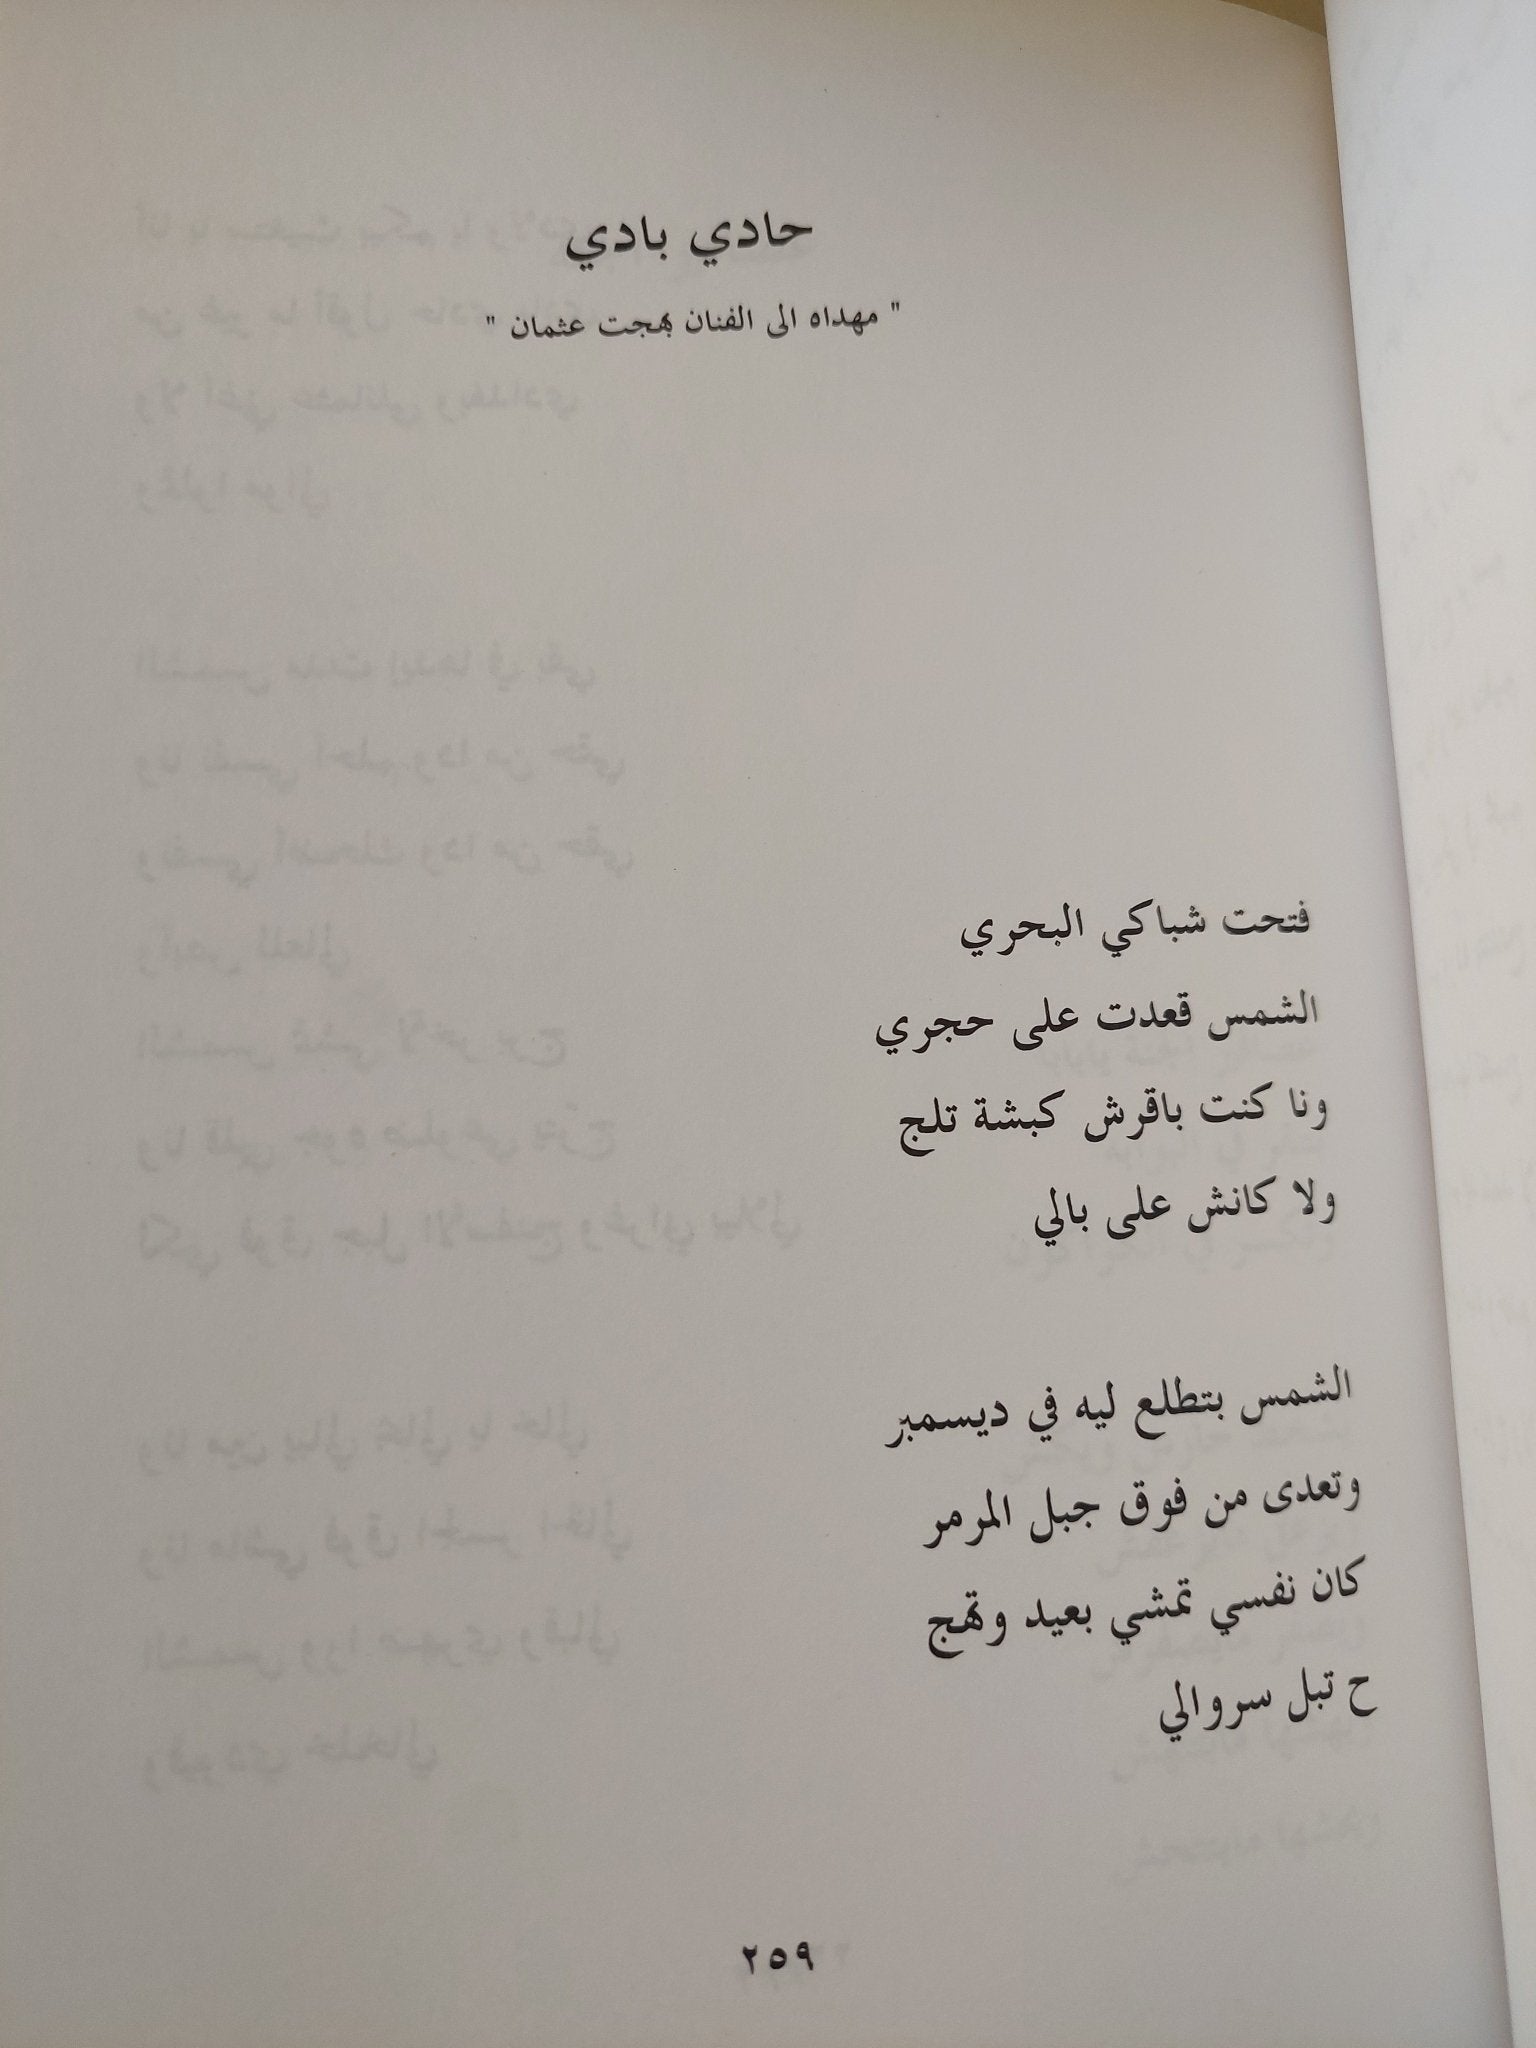 حادي بادي
" مهداه الى الفنان بهجت عثمان "
فتحت شباكي البحري
الشمس قعدت على حجري
ونا كنت باقرش كبشة تلج
ولا كانش على بالي
الشمس بتطلع ليه في ديسمبر
وتعدى من فوق جبل المرمر
كان نفسي تمشي بعيد وتهج
ح تبل سروالي
٢٥٩